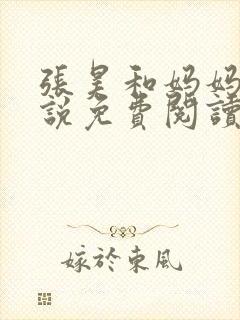 張昊和媽媽
說免費閱讀
嫁於東風